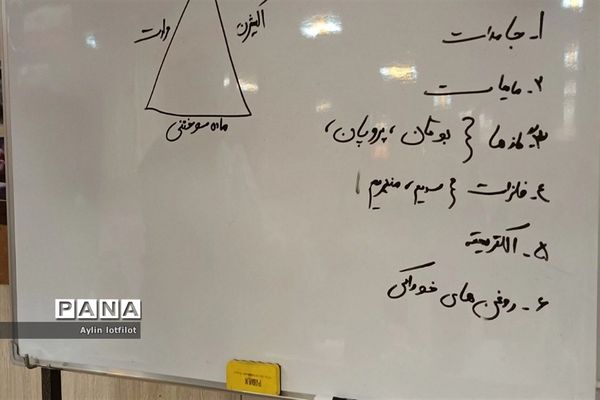 اکیژن
حرارت
ماده سوختنی
۱ـ جامدات
۲ـ مایعات
۳ـ گازها { بوتان، پروپان،
٤ـ فلزات { سدیم، منیزیم
۵ـ الکتریسیته
۶ـ روغن های خوراکی
PANA
Aylin lotfilot